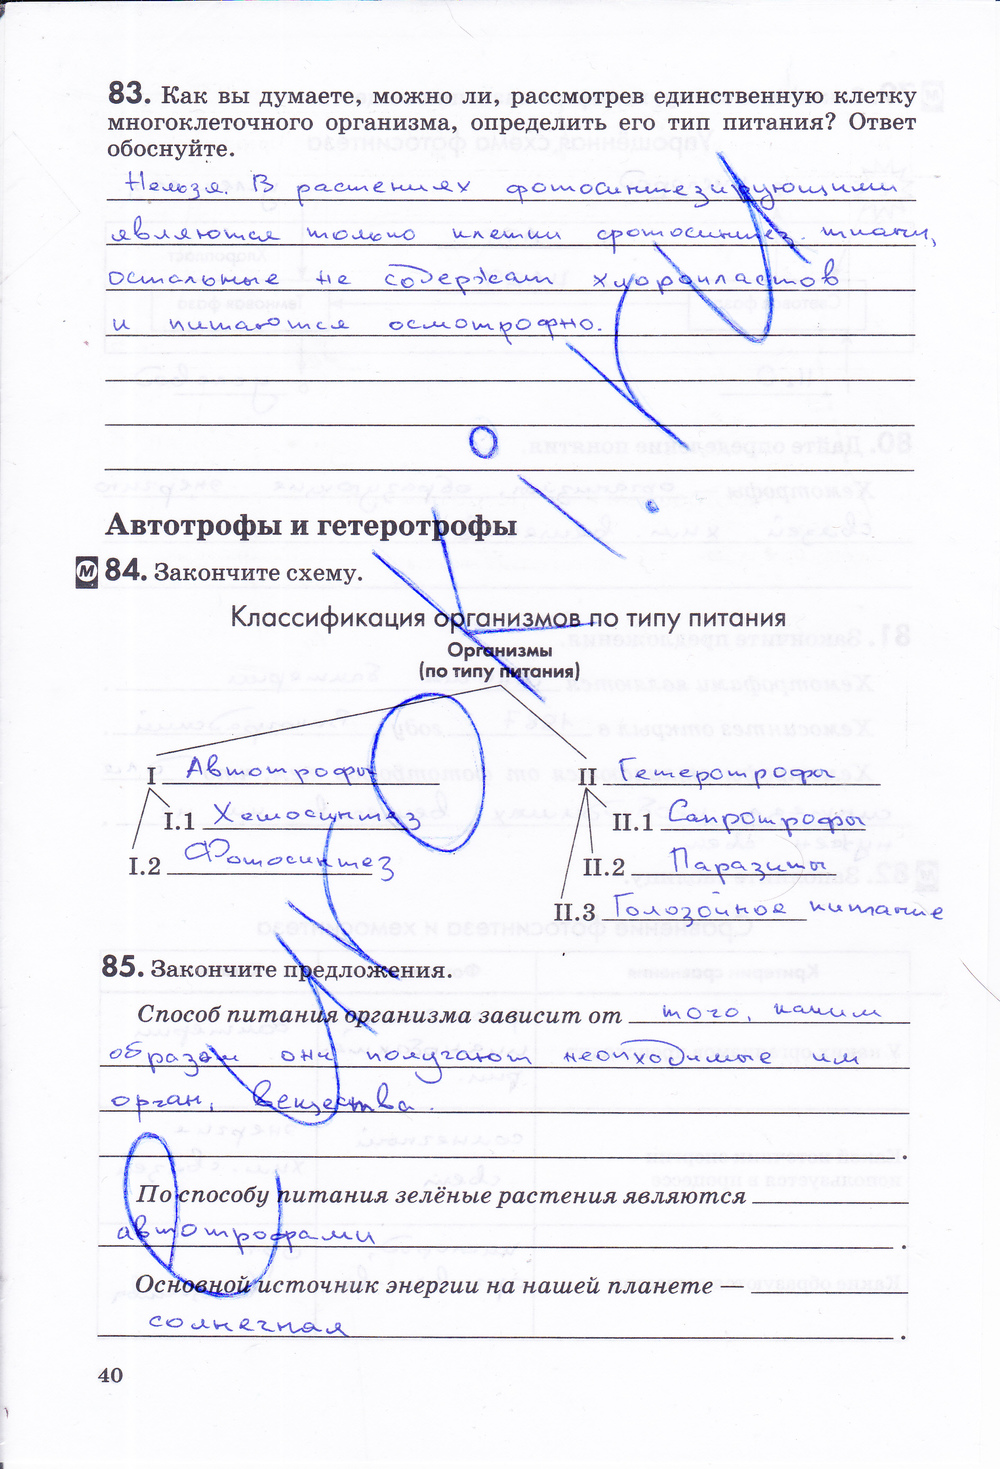 83. Как вы думаете, можно ли, рассмотрев единственную клетку
многоклеточного организма, определить его тип питания? Ответ
обоснуйте.
Нельзя. В растениях фотосинтезирующими
являются только клетки фотосинтез. ткани,
остальные не содержат хлоропластов
и питаются осмотрофно.
Автотрофы и гетеротрофы
М 84. Закончите схему.
Классификация организмов по типу питания
Организмы
(по типу питания)
I Автотрофы II Гетеротрофы
I.1 Хемосинтез II.1 Сапротрофы
I.2 Фотосинтез II.2 Паразиты
II.3 Голозойное питание
85. Закончите предложения.
Способ питания организма зависит от того, каким
образом они получают необходимые им
орган. вещества.
По способу питания зелёные растения являются
автотрофами.
Основной источник энергии на нашей планете —
солнечная.
40